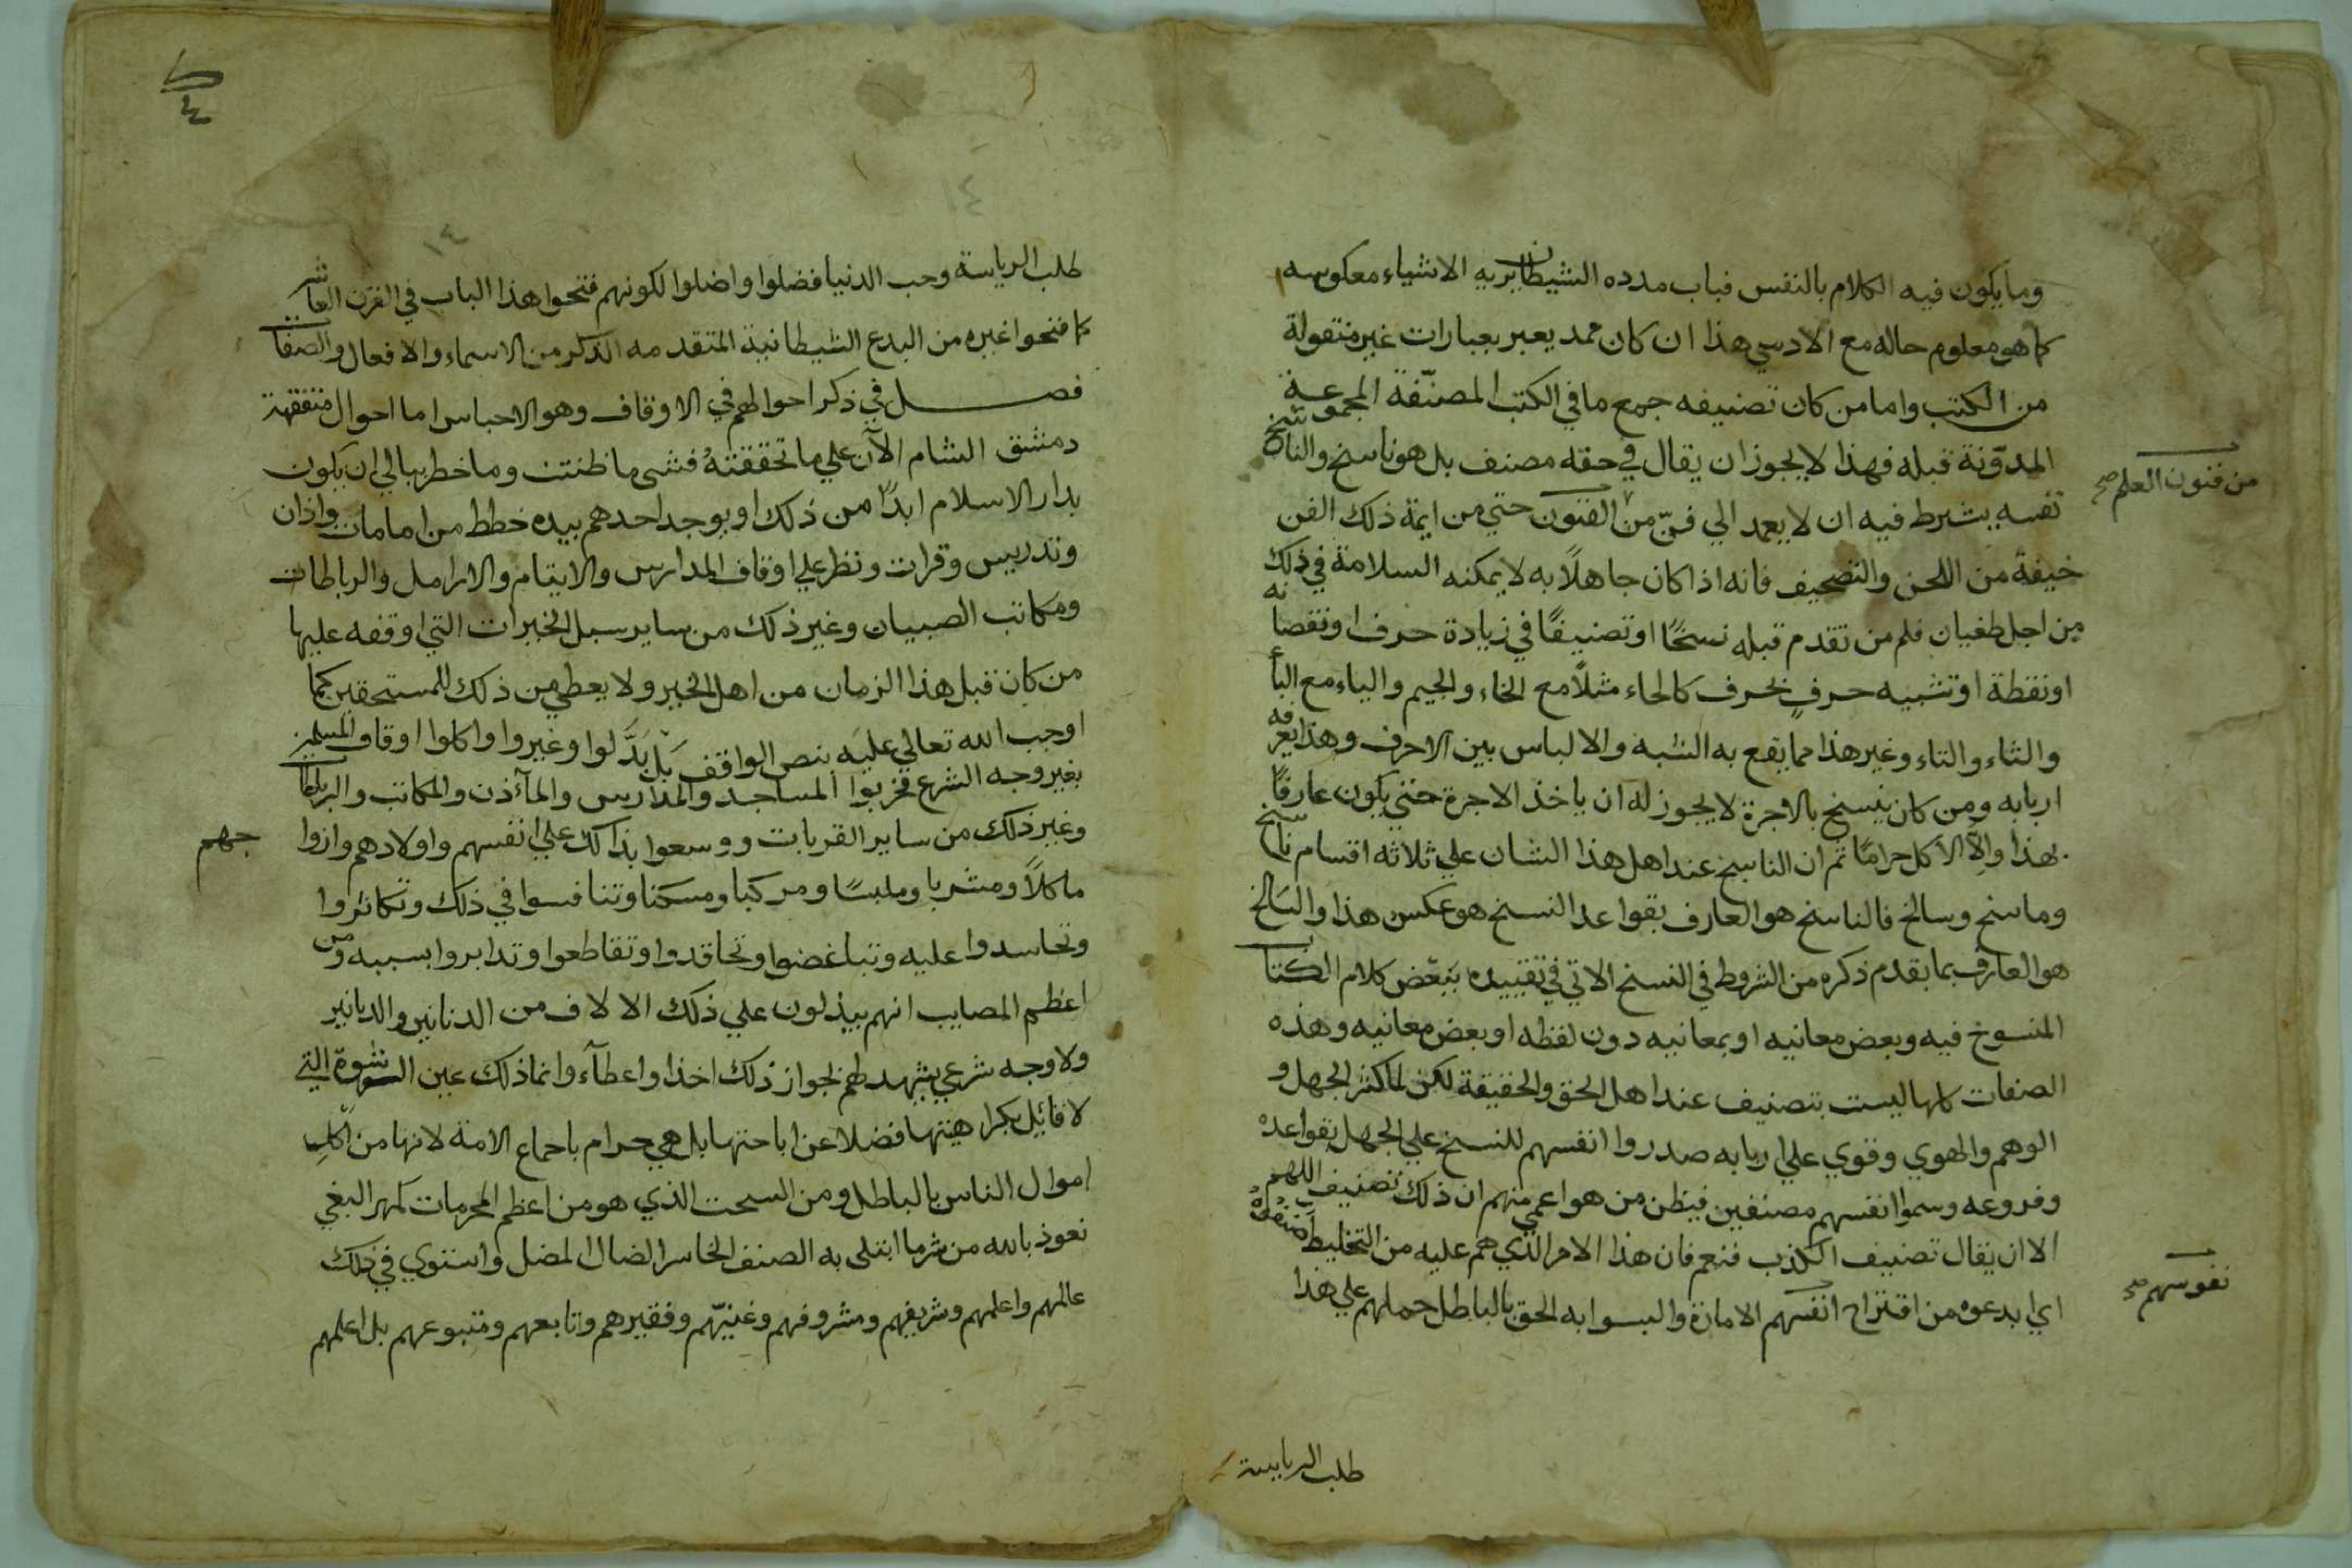 وما يكون فيه الكلام بالنفس فباب مدده الشيطان يريه الاشياء معكوسه
كما هو معلوم حاله مع الادمي هذا ان كان ممد يعبر بعبارات غير منقولة
من الكتب واما من كان تصنيفه جمع ما في الكتب المصنّفة المجموعة
المدوّنة قبله فهذا لا يجوز ان يقال في حقه مصنف بل هو ناسخ والناسخ
من فنون العلم صح
نفسه يشرط فيه ان لا يعمد الي فنّ من الفنون حتي من ايمة ذلك الفن
خيفة من اللحن والتصحيف فانه اذا كان جاهلًا به لا يمكنه السلامة في ذلك
من اجل طغيان قلم من تقدم قبله نسخًا او تصنيفًا في زيادة حرف او نقصانه
او نقطة او تشبيه حرفٍ بحرف كالحاء مثلًا مع الخاء والجيم والياء مع الباء
والثاء والتاء وغير هذا مما يقع به الشبه والالباس بين الاحرف وهذا يعرفه
اربابه ومن كان ينسخ بالاجرة لا يجوز له ان ياخذ الاجرة حتي يكون عارفًا
بهذا والّا الاكل حرامًا ثم ان الناسخ عند اهل هذا الشان علي ثلاثه اقسام ناسخ
وماسخ وسالخ فالناسخ هو العارف بقواعد النسخ هو عكس هذا والسالخ
هو العارف بما تقدم ذكره من الشروط في النسخ الاتي في تقييده ببعض كلام الكتاب
المنسوخ فيه وبعض معانيه او بمعانيه دون لفظه او بعض معانيه وهذه
الصفات كلها ليست بتصنيف عند اهل الحق والحقيقة لكن لما كثر الجهل و
الوهم والهوي وقوي علي اربابه صدروا انفسهم للنسخ علي الجهل بقواعده
وفروعه وسموا انفسهم مصنفين فيظن من هو اعمي منهم ان ذلك تصنيف اللهم
الا ان يقال تصنيف الكذب فنعم فان هذا الامر الذي هم عليه من التخليط صنفوه
اي ابدعوه من اقتراح انفسهم الامارة والبسوا به الحق بالباطل حملهم علي هذا
نفوسهم صح
طلب الرياسة
١٤
طلب الرياسة وحب الدنيا فضلوا واضلوا لكونهم فتحوا هذا الباب في القرن العاشر
كما فتحوا غيره من البدع الشيطانية المتقدمه الذكر من الاسماء والافعال والصفات
فصل في ذكر احوالهم في الاوقاف وهو الاحباس اما احوال متفقهة
دمشق الشام الآن علي ما تحققته فشي ما ظننت وما خطر ببالي ان يكون
بدار الاسلام ابدًا من ذلك او يوجد احدهم بيده خطط من امامات واذان
وتدريس وقرات ونظر علي اوقاف المدارس والايتام والارامل والرباطات
ومكاتب الصبيان وغير ذلك من ساير سبل الخيرات التي اوقفه عليها
من كان قبل هذا الزمان من اهل الخير ولا يعطي من ذلك للمستحقين كما
اوجب الله تعالي عليه بنص الواقف بل بَدَّلوا وغيروا واكلوا اوقاف المسلمين
بغير وجه الشرع فخربوا المساجد والمدارس والمآذن والمكاتب والرباطات
وغير ذلك من ساير القربات ووسعوا بذلك علي انفسهم واولادهم وازوا
جهم
ماكلًا ومشربا وملبسًا ومركبا ومسكنا وتنافسوا في ذلك وتكاثروا
وتحاسدوا عليه وتباغضوا وتحاقدوا وتقاطعوا وتدابروا بسببه ومن
اعظم المصايب انهم يبذلون علي ذلك الالاف من الدنانير والدنانير
ولا وجه شرعي يشهد لهم بجواز ذلك اخذا واعطآء وانما ذلك عين الرشوة التي
لا قائيل بكراهيتها فضلا عن اباحتها بل هي حرام باجماع الامة لانها من اكلِ
اموال الناس بالباطل ومن السحت الذي هو من اعظم المحرمات كمهر البغي
نعوذ بالله من شر ما ابتلي به الصنف الخاسر الضال المضل واستوي في ذلك
عالمهم واعلمهم وشريفهم ومشروفهم وغنيّهم وفقيرهم وتابعهم ومتبوعهم بل اعلمهم